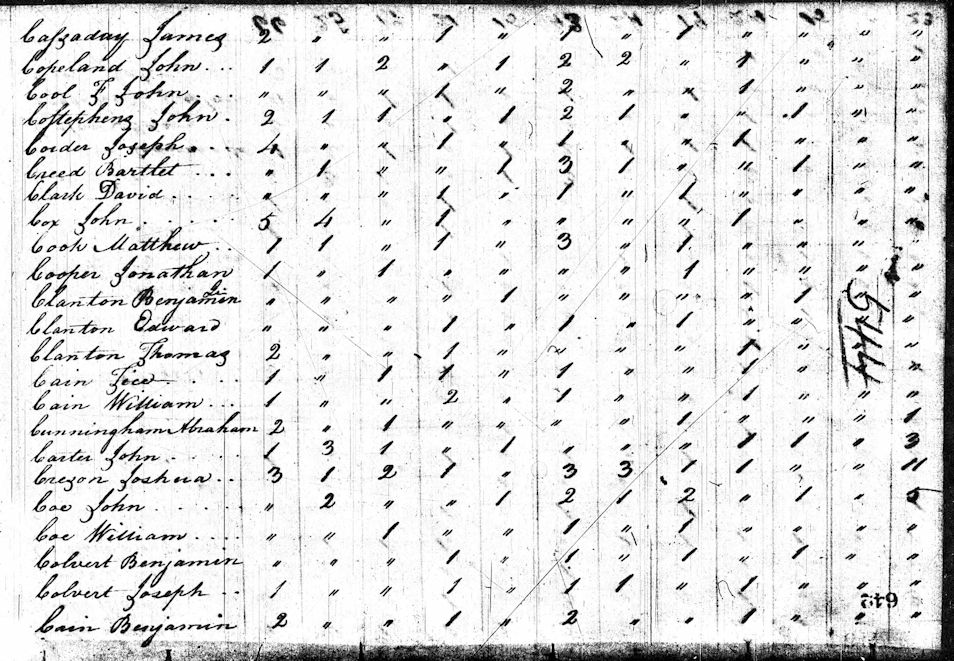 Cassaday James 2 " " 1 " 1 " 1 " " " "
Copeland John . . . 1 1 2 " 1 2 2 " 1 " " "
Cool F John . . . " " " 1 " 2 " " 1 " " "
Costephens John . 2 1 1 " 1 2 1 " " 1 " "
Corder Joseph . . . 4 " " 1 " 1 " " 1 " " "
Creed Bartlet . . . " 1 " " 1 3 1 " " 1 " "
Clark David . . . . " " " 1 " 1 " 1 " " " "
Cox John . . . . . 5 4 " 1 " " " " 1 " "
Cook Matthew . . 1 1 " 1 " 3 " 1 " " " "
Cooper Jonathan 1 " 1 " " " " 1 " " " "
Clanton Benjamin " " " " 1 " " " " 1 "
Clanton Edward " " " 1 " 1 " 1 " " "
Clanton Thomas 2 " " 1 " " " " 1 " "
Cain 1 " 1 1 " 1 " " 1 " "
Cain William . . . 1 " " 2 " 1 " " 1 " " "
Cunningham Abraham 2 " 1 " " " " 1 " " " 1
Carter John . . . . 1 3 1 " 1 " " " 1 1 " 3
Crezon Joshua . . 3 1 2 1 " 3 3 1 1 " " 11
Coe John . . . . . " 2 " " 1 2 1 2 " 1 "
Coe William . . . . " " 1 " " 1 " 1 " " " "
Colvert Benjamin " " " 1 " 1 " 1 " 1 " "
Colvert Joseph . . 1 " " 1 " 1 1 " 1 " "
Cain Benjamin 2 " " 1 " 2 " " 1 " " "